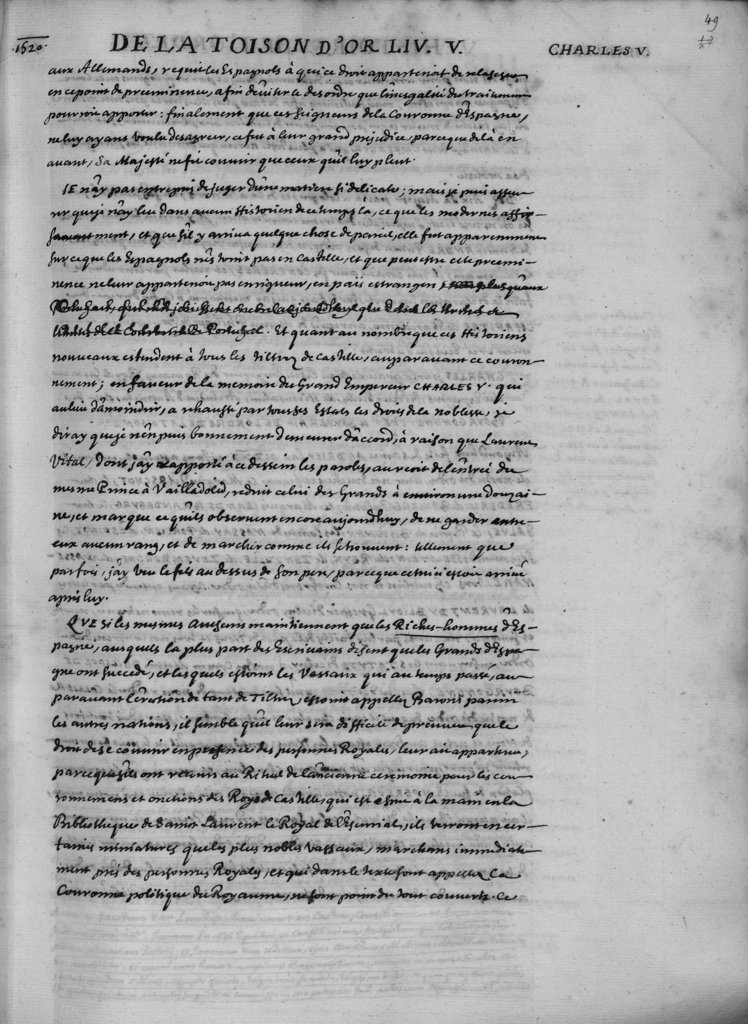 49
1520. DE LA TOISON D'OR LIV. V. CHARLES V.
aux Allemands, requit les Espagnols à qui ce droit appartenoit de relascher
en ce point de preeminence, afin d'éviter le desordre que l'inegalité du traitement
pourroit apporter: finalement que ces seigneurs de la Couronne d'Espagne,
ne luy ayans voulu desagreer, ce fut à leur grand prejudice, parceque delà en
avant, Sa Majesté ne fit couvrir que ceux qu'il luy pleut.
IE n'ay pas entrepris de juger d'une matiere si delicate; mais je puis asseu-
rer que je n'ay leu dans aucun Historien de ce temps là, ce que les modernes
ment, et que s'il y arriva quelque chose de pareil, elle fut apparemment
sur ce que les Espagnols n'estoint pas en Castille, et que peut estre cete preemi-
nence ne leur appartenoit pas en rigueur, en païs estranger
Et quant au nombre que ces Historiens
nouveaux estendent à tous les Tiltrez de Castille, auparavant ce couron-
nement; en faveur de la memoire du Grand Empereur CHARLES V. qui
au lieu d'amoindrir, a rehaussé par tous ses Estats les droits de la noblesse, je
diray que je n'en puis bonnement demeurer d'accord, à raison que Laurens
Vital, dont j'ay rapporté à ce dessein les paroles, au recit de l'entrée du
mesme Prince à Vailladolid, reduit celui des Grands à environ une douzai-
ne, et marque ce qu'ils observent encore aujourdhuy, de ne garder entre-
eux aucun rang, et de marcher comme ils se trouvent: tellement que
parfois, j'ay veu le fils au dessus de son pere, parceque cettui ci estoit arrivé
aprés luy.
QVE si les mesmes Auteurs maintiennent que les Riches-hommes d'Es-
pagne, ausquels la plus part des Escrivains disent que les Grands d'Espa-
gne ont succedé, et lesquels estoint les Vassaux qui au temps passé, au-
paravant l'erection de tant de Tiltrez, estoint appellez Barons parmi
les autres nations, il semble qu'il leur sera difficile de preuver que le
droit de se couvrir en presence des personnes Royales, leur ait appartenu,
parceque s'ils ont recours au Rituel de l'ancienne ceremonie pour les cou-
ronnemens et onctions des Roys de Castille, qui est escrite à la main en la
Bibliotheque de Saint Laurent le Royal de l'Escurial, ils verront en cer-
taines miniatures que les plus nobles vassaux, marchans immediate-
ment prés des personnes Royales, et qui dans le texte sont appellez La
Couronne politique du Royaume, ne sont point du tout couverts. Ce